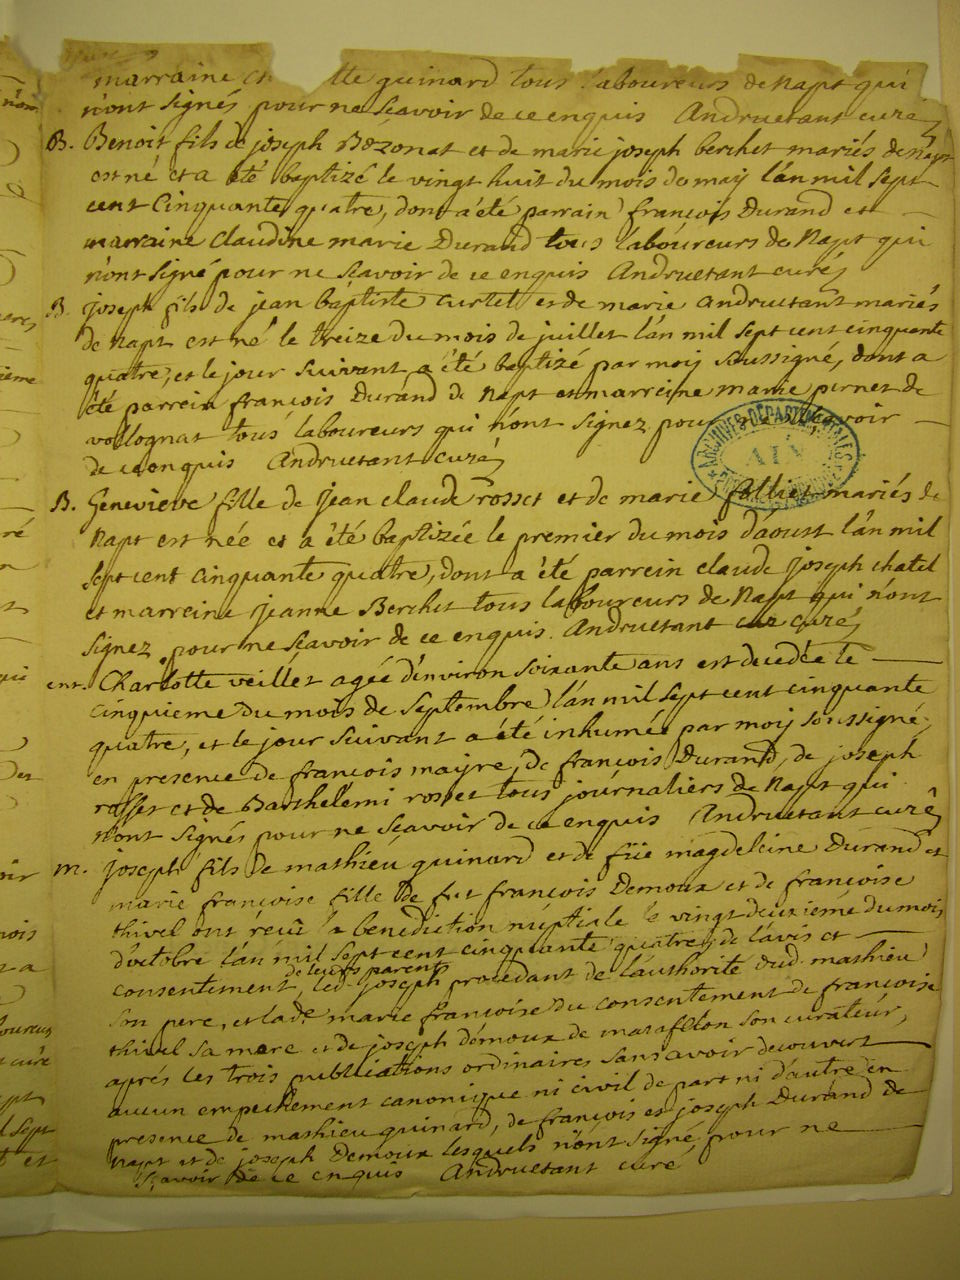 marraine ch lle guinard tous laboureurs de napt qui
n'ont signés pour ne scavoir de ce enquis Andruetant curé
B. Benoit fils de joseph Bozonat et de marie joseph berchet mariés de napt
est né et a été baptizé le vingt huit du mois de maij l'an mil sept
cent Cinquante quatre, dont a été parrain françois Durand et
marraine claudine marie Durand tous laboureurs de Napt qui
n'ont signé pour ne scavoir de ce enquis Andruetant curé
B joseph fils de jean baptiste curtet et de marie andruetant mariés
de napt est né le treize du mois de juillet l'an mil sept cent cinquante
quatre, et le jour suivant a été baptizé par moij soussigné, dont a
été parrein françois Durand de Napt et marreine marie pernet de
vollognat tous laboureurs qui n'ont signez pour scavoir
de ce enquis Andruetant curé
ARCHIVES DÉPARTEMENTALES
AIN
B. Genevieve fille de jean claude rosset et de marie folliet mariés de
Napt est née et a été baptizée le premier du mois d'aoust l'an mil
sept cent cinquante quatre, dont a été parrein claude joseph chatel
et marreine jeanne Berchet tous laboureurs de Napt qui n'ont
signez pour ne scavoir de ce enquis. Andruetant curé
ent. Charlotte veillet agée d'environ soixante ans est decedée le
cinquieme du mois de Septembre l'an mil sept cent cinquante
quatre, et le jour suivant a été inhumée par moij soussigné,
en presence de françois maijre, de françois Durand, de joseph
rosset et de Barthelemi rosset tous journaliers de Napt qui
n'ont signés pour ne scavoir de ce enquis Andruetant curé
m. joseph fils de mathieu guinard et de füe magdeleine Durand et
marie françoise fille de fut françois Demoux et de françoise
thivel ont reçu la benediction nuptiale le vingt deuxieme du mois
d'octobre l'an mil sept cent cinquante quatre, de l'avis et
de leurs parents
consentement, led. joseph procedant de l'authorité dud. mathieu
son pere, et lade. marie françoise du consentement de françoise
thivel sa mere et de joseph demoux de matafelon son curateur,
aprés les trois publications ordinaires sans avoir decouvert
aucun empechement canonique ni civil de part ni d'autre en
presence de mathieu guinard, de françois et joseph Durand de
Napt et de joseph Demoux lesquels n'ont signé pour ne
scavoir de ce enquis Andruetant curé